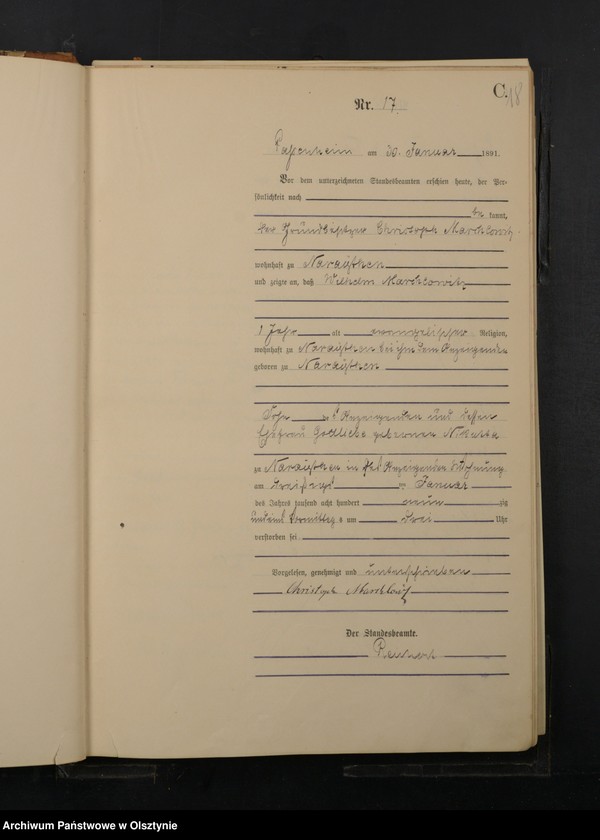 C.
18
Nr. 17
Passenheim am 30. Januar 1891.
Vor dem unterzeichneten Standesbeamten erschien heute, der Per-
sönlichkeit nach
be kannt,
der Grundbesitzer Christoph Marchlowitz
wohnhaft zu Narajthen
und zeigte an, daß Wilhelm Marchlowitz
1 Jahr alt evangelischer Religion,
wohnhaft zu Narajthen bei ihm dem Anzeigenden
geboren zu Narajthen
Sohn des Anzeigenden und dessen
Ehefrau Gottliebe geborenen
zu Narajthen in des Anzeigenden Wohnung
am dreißigst en Januar
des Jahres tausend acht hundert neun zig
und eins Vormittags um drei Uhr
verstorben sei
Vorgelesen, genehmigt und unterschrieben
Christoph
Der Standesbeamte.
Archiwum Państwowe w Olsztynie